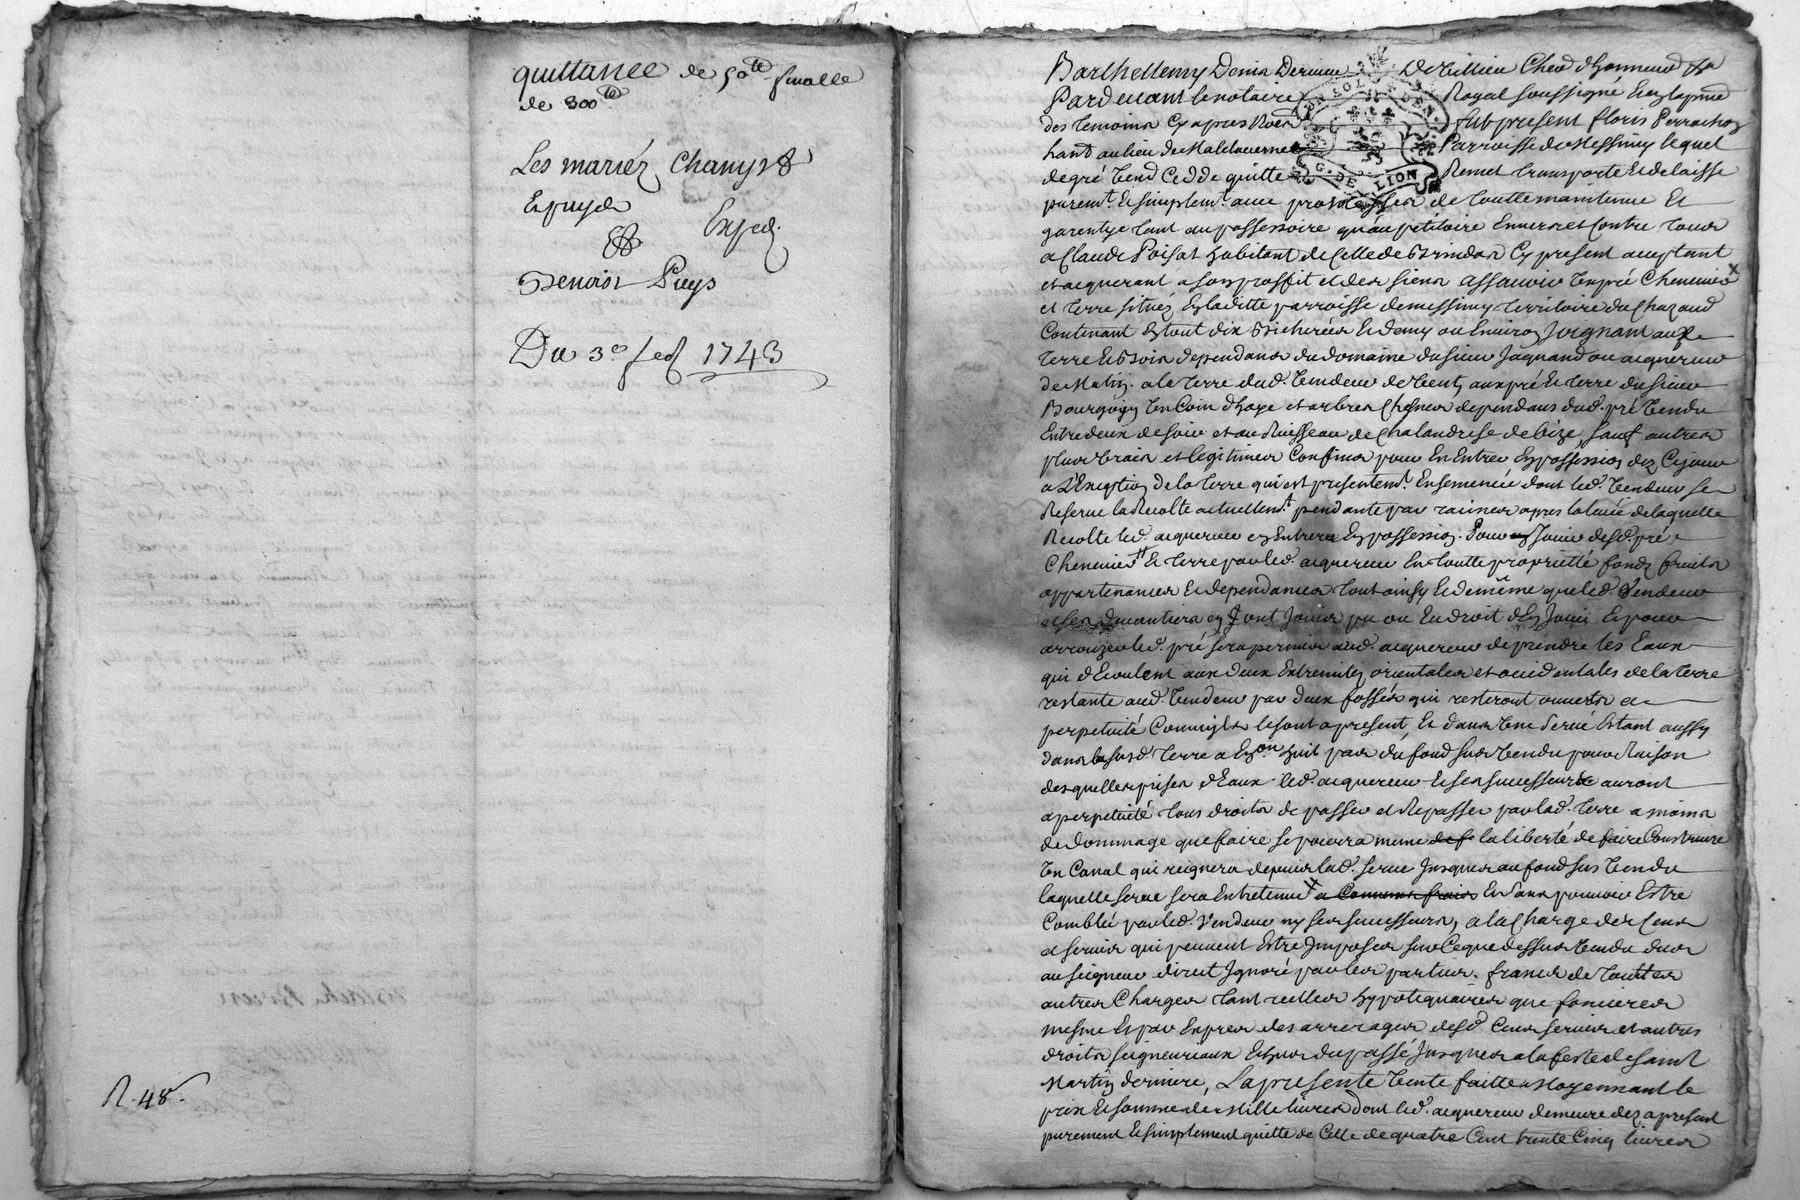 quittance de 50ᵗᵉ finalle
de 300ᵗᵉ
Les mariéz Chanys
Exped.
Benoist Puys
Du 3ᵉ 1743
R. 48.
Barthellemy Denis
Pardevant le notaire Royal soussigné
des temoins cy apres fut present floris Perrachon
hant au lieu de Parroisse de Messimy lequel
degré vend Cedde quitte Remet transporte et delaisse
G. DE LION
purem.t et simplem.t avec de toutte maintenue et
garentye tant au possessoire qu'au petitoire Envers et Contre tous
a Claude Poisat habitant de Celle de Brindas Cy present aceptant
et aquerant a son proffit et des siens assavoir un pré Chenevier
et terre situéz En laditte parroisse de messimy territoire du Chazaud
Contenant En tout dix Bicherées et demy ou Environ Joignant aux
terre et Bois dependans du domaine du sieur
de Matin. a la terre dud. vendeur de vent, aux pré et terre du sieur
un Coin d'haye et arbres Chesnes dependans dud. pré vendu
Entre deux de soir et au Ruisseau de Chalandrese de bize, sauf autres
plus vrais et legitimes Confins pour En Entrer En possession dez Cejour
a L'Exeption de la terre qui est presentem.t Ensemencée dont led. vendeur se
Reserve la Recolte actuellem.t pendante par racines apres la levée de laquelle
Recolte led. aquereur en Entrera En possession. Pour Jouir desd. pré
Chenevier et terre par led. aquereur En toutte proprietté fondz fruits
appartenances et dependances tout ainsy et de même que led. vendeur
et ses devantiers en ont Jouis pu ou Eu droit d'En Jouir Et pour
arrouzer led. pré sera permis aud. aquereur de prendre les Eaux
qui d'Ecoulent aux deux Extremitez orientales et occidentales de la terre
restante aud. vendeur par deux fossés qui resteront ouverts a
perpetuité Comme ils le sont a present, et dans une Serve Estant aussy
dans la susd. terre a En.on huit pas du fond sus vendu pour Raison
desquelles prises d'Eaux led. aquereur et ses successeurs auront
a perpetuité tous droits de passer et Repasser par lad. terre a moins
de dommage que faire se pourra meme la liberté de faire Construire
un Canal qui reignera depuis lad. serve Jusques au fond sus vendu
laquelle serve sera Entretenue a Communs frais Et sans pouvoir Estre
Comblée par led. vendeur ny ses successeurs, a la Charge des Cens
et servis qui peuvent Estre Imposés sur Ceque dessus vendu dus
au seigneur direct Ignoré par les parties. francs de touttes
autres Charges tant reelles hypotequaires que foncieres
mesme Et par Exprès des arrerages desd. Cens servis et autres
droits seigneuriaux Echus du passé Jusques a la feste de saint
Martin derniere, La presente vente faitte Moyennant le
prix et somme de Mille livres dont led. aquereur demeure dez apresent
purement et simplement quitte de Celle de quatre Cent trente Cinq livres